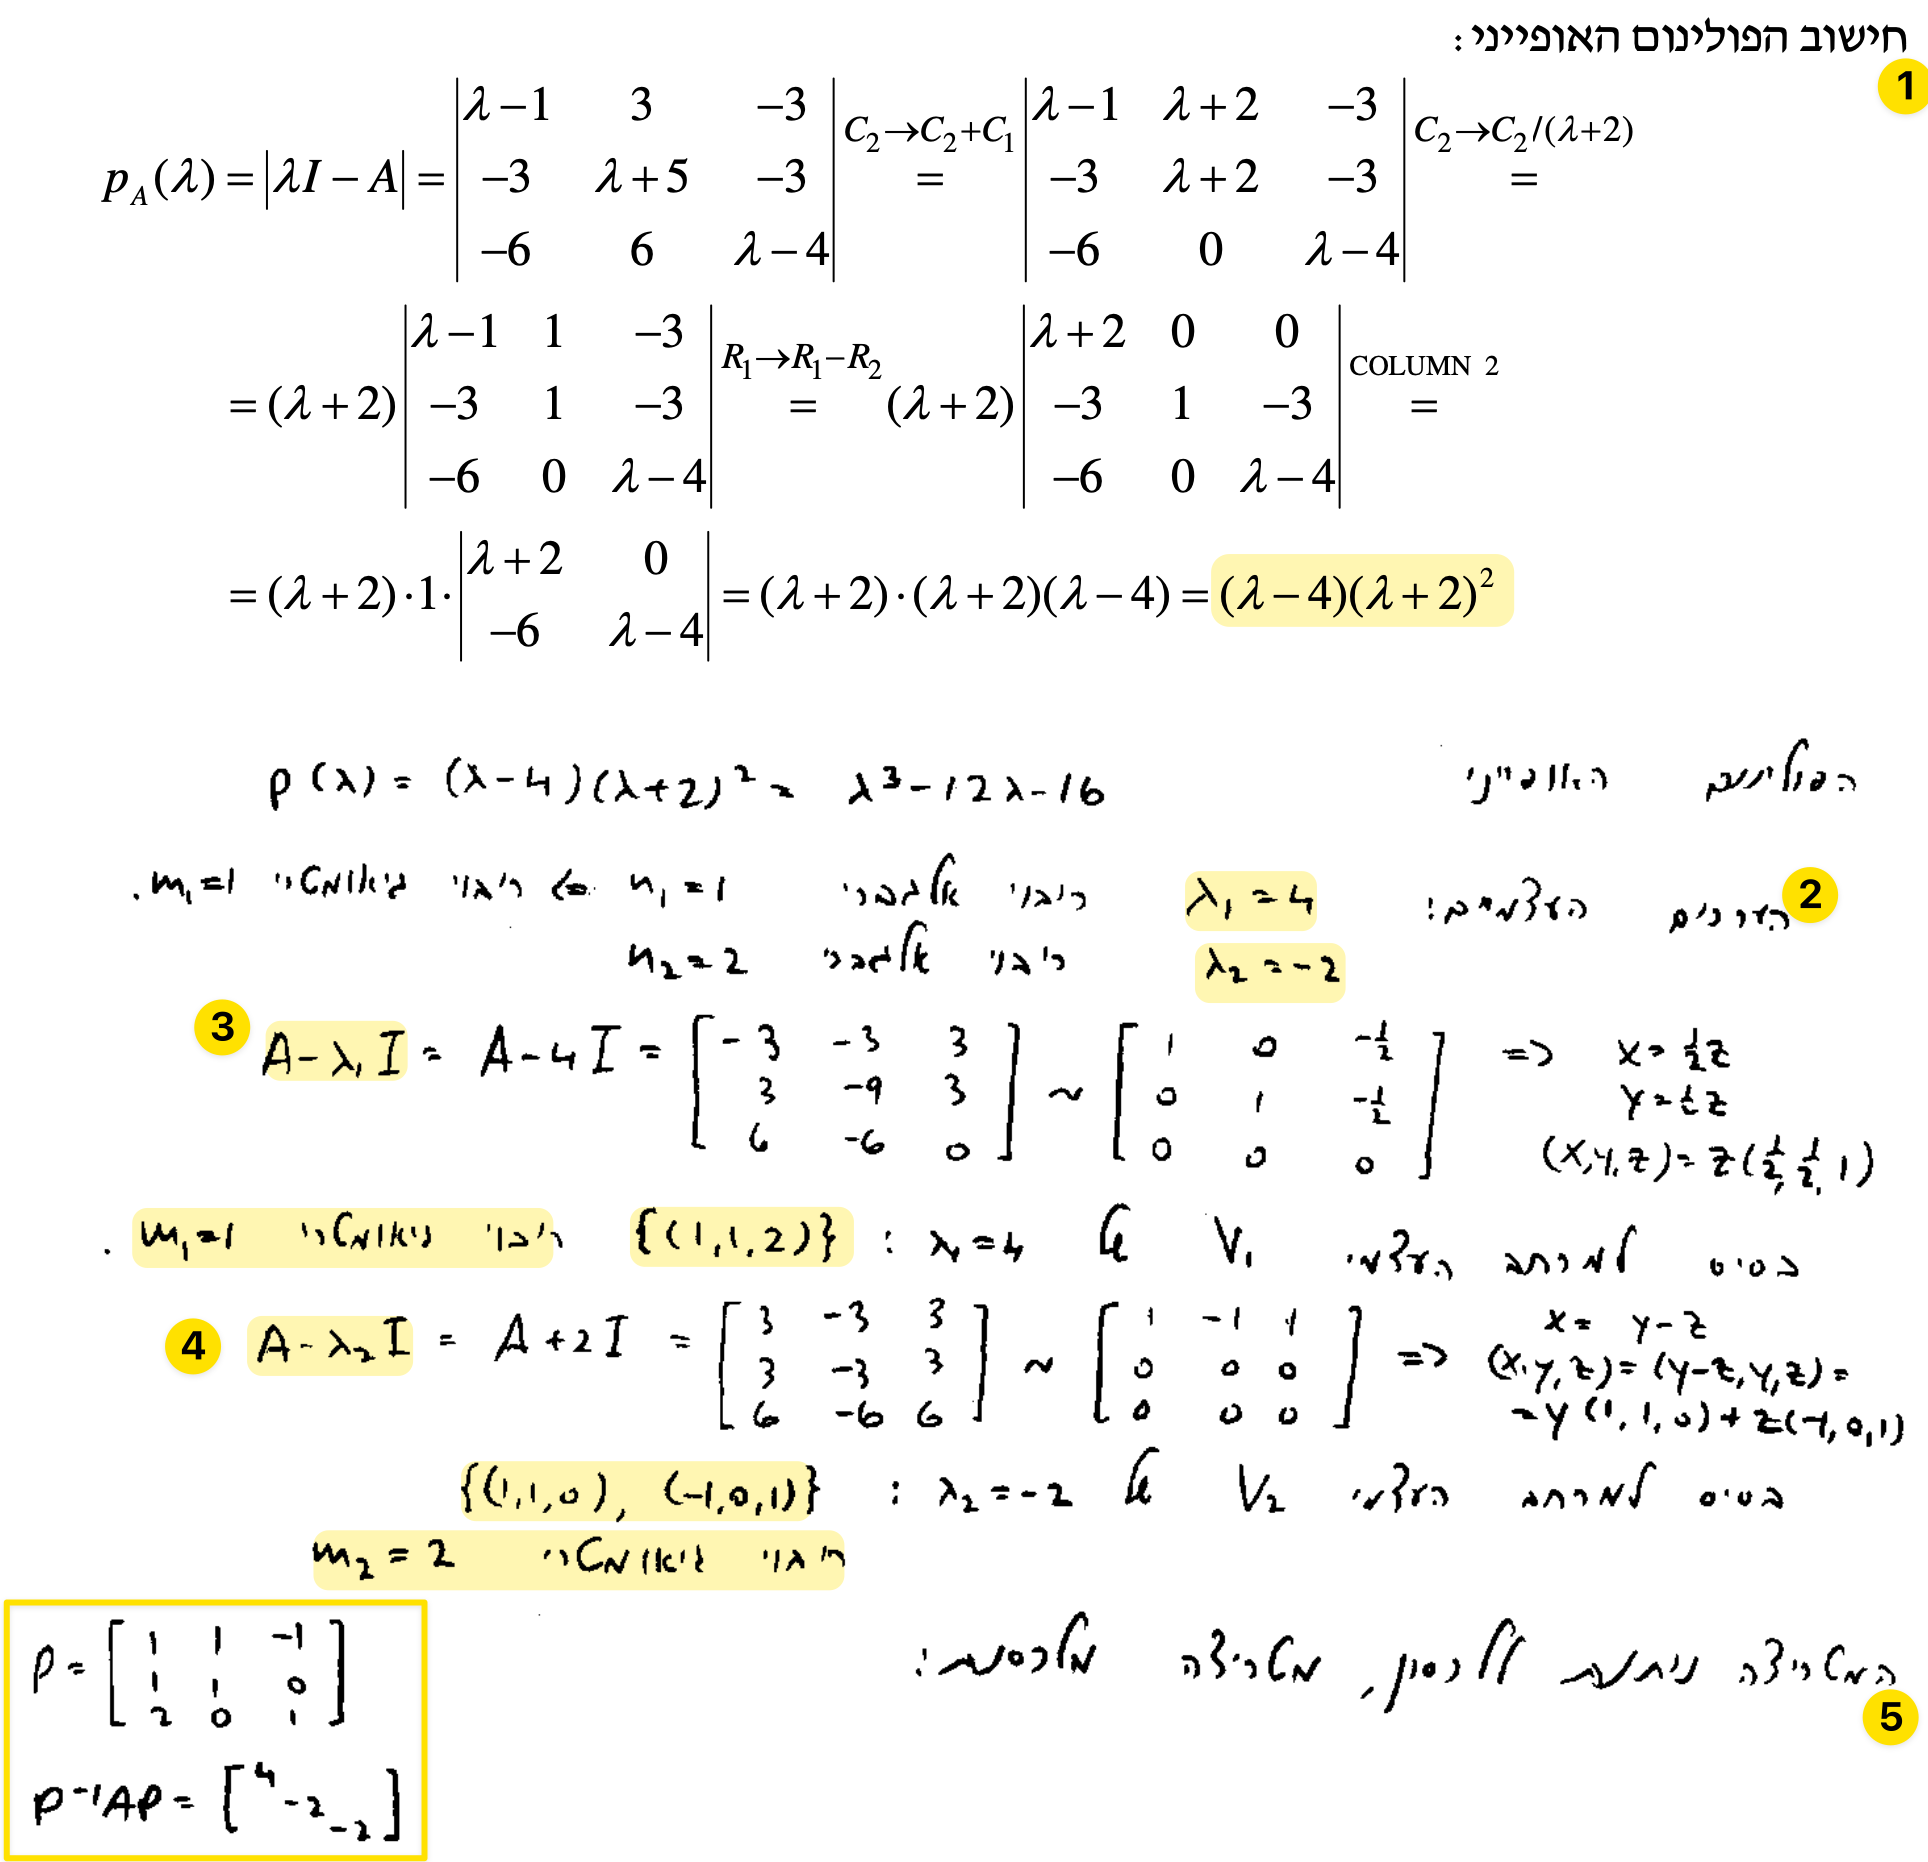 חישוב הפולינום האופייני:
1
p_A(λ) = |λI − A| = |λ−1 3 −3; −3 λ+5 −3; −6 6 λ−4| C₂→C₂+C₁ = |λ−1 λ+2 −3; −3 λ+2 −3; −6 0 λ−4| C₂→C₂/(λ+2) =
= (λ+2) |λ−1 1 −3; −3 1 −3; −6 0 λ−4| R₁→R₁−R₂ = (λ+2) |λ+2 0 0; −3 1 −3; −6 0 λ−4| COLUMN 2 =
= (λ+2)·1·|λ+2 0; −6 λ−4| = (λ+2)·(λ+2)(λ−4) = (λ−4)(λ+2)²
הפולינום האופייני p(λ) = (λ−4)(λ+2)² = λ³−12λ−16
2 הערכים העצמיים: λ₁ = 4 ריבוי אלגברי n₁ = 1 => ריבוי גיאומטרי m₁=1.
λ₂ = −2 ריבוי אלגברי n₂ = 2
3 A−λ₁I = A−4I = [−3 −3 3; 3 −9 3; 6 −6 0] ~ [1 0 −½; 0 1 −½; 0 0 0] => x = ½z
y = ½z
(x,y,z) = z(½, ½, 1)
בסיס למרחב העצמי V₁ של λ₁=4 : {(1,1,2)} ריבוי גיאומטרי m₁=1.
4 A−λ₂I = A+2I = [3 −3 3; 3 −3 3; 6 −6 6] ~ [1 −1 1; 0 0 0; 0 0 0] => x = y−z
(x,y,z) = (y−z,y,z) =
= y(1,1,0) + z(−1,0,1)
בסיס למרחב העצמי V₂ של λ₂=−2 : {(1,1,0), (−1,0,1)}
ריבוי גיאומטרי m₂ = 2
המטריצה ניתנת ללכסון, מטריצה מלכסנת:
5
P = [1 1 −1; 1 1 0; 2 0 1]
P⁻¹AP = [4 −2 −2]